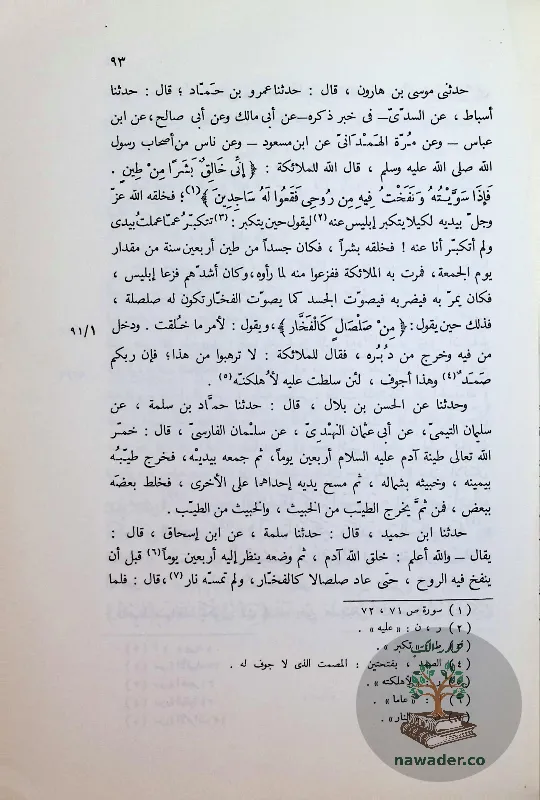 ٩٣
حدثنى موسى بن هارون ، قال : حدثنا عمرو بن حمّاد ؛ قال : حدثنا
أسباط ، عن السدّىّ – فى خبر ذكره – عن أبى مالك وعن أبى صالح ، عن ابن
عباس – وعن مُرّة الهمْدَانىّ عن ابن مسعود – وعن ناس من أصحاب رسول
الله صلى الله عليه وسلم ، قال الله للملائكة : ﴿ إِنِّى خَالِقٌ بَشَرًا مِنْ طِينٍ .
فَإِذَا سَوَّيْتُهُ وَنَفَخْتُ فِيهِ مِن رُوحِى فَقَعُوا لَهُ سَاجِدِينَ ﴾(١)؛ فخلقه الله عزّ
وجلّ بيديه لكيلا يتكبر إبليس عنه (٢) ليقول حين يتكبر : (٣) تتكبّر عمّا عملتُ بيدى
ولم أتكبّر أنا عنه ! فخلقه بشراً ، فكان جسداً من طين أربعين سنة من مقدار
يوم الجمعة، فمرت به الملائكة ففزعوا منه لما رأوه، وكان أشدّهم فزعا إبليس ،
فكان يمرّ به فيضربه فيصوت الجسد كما يصوّت الفخّار تكون له صلصلة ،
فذلك حين يقول: ﴿ مِنْ صَلْصَالٍ كَالْفَخَّارِ ﴾، ويقول : لأمر ما خُلقت . ودخل
٩١/١
من فيه وخرج من دُبُره ، فقال للملائكة : لا ترهبوا من هذا؛ فإن ربكم
صَمَدٌ (٤) وهذا أجوف ، لئن سلطت عليه لأهلكنّه (٥) .
وحدثنا عن الحسن بن بلال ، قال : حدثنا حمّاد بن سلمة ، عن
سليمان التيمىّ، عن أبى عثمان النهْدِىّ ، عن سلْمان الفارسىّ ، قال : خمّر
الله تعالى طينة آدم عليه السلام أربعين يوماً، ثم جمعه بيديْه، فخرج طيّبُه
بيمينه ، وخبيثه بشماله ، ثم مسح يديه إحداهما على الأخرى ، فخلط بعضَه
ببعض ، فمن ثمَّ يخرج الطيّب من الخبيث ، والخبيث من الطيب .
حدثنا ابن حميد ، قال : حدثنا سلمة ، عن ابن إسحاق ، قال :
يقال – والله أعلم : خلق الله آدم ، ثم وضعه ينظر إليه أربعين يوماً (٦) قبل أن
ينفخ فيه الروح ، حتى عاد صلصالا كالفخّار، ولم تمسّه نار (٧)، قال : فلما
(١) سورة ص ٧١ ، ٧٢
(٢) ر ، ن : « عليه » .
تكبر » .
(٤) ، بفتحتين : المصمت الذى لا جوف له .
لأهلكته » .
: « عاما » .
النار » .
nawader.co